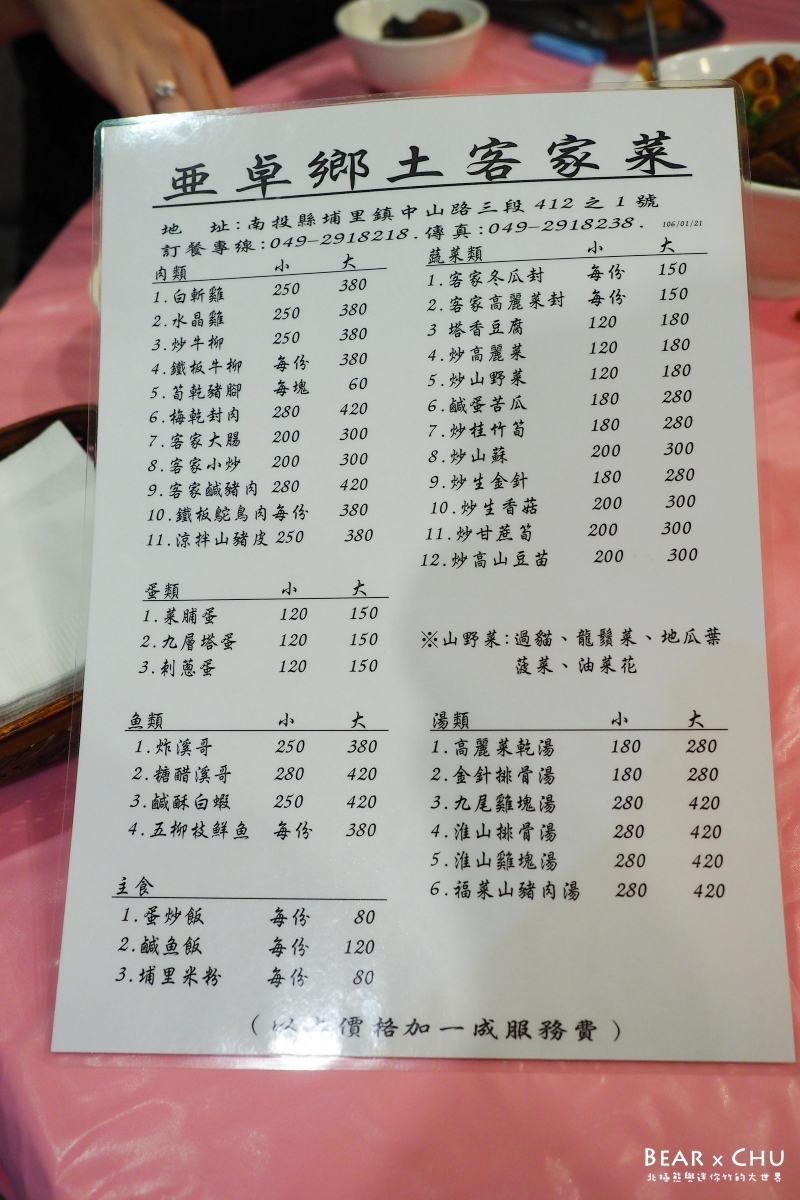 亜卓鄉土客家菜
地 址:南投縣埔里鎮中山路三段412之1號
訂餐專線:049-2918218.傳真:049-2918238. 106/01/21
肉類 小 大
1.白斬雞 250 380
2.水晶雞 250 380
3.炒牛柳 250 380
4.鐵板牛柳 每份 380
5.筍乾豬腳 每塊 60
6.梅乾封肉 280 420
7.客家大腸 200 300
8.客家小炒 200 300
9.客家鹹豬肉 280 420
10.鐵板鴕鳥肉 每份 380
11.涼拌山豬皮 250 380
蛋類 小 大
1.菜脯蛋 120 150
2.九層塔蛋 120 150
3.刺蔥蛋 120 150
魚類 小 大
1.炸溪哥 250 380
2.糖醋溪哥 280 420
3.鹹酥白蝦 250 420
4.五柳枝鮮魚 每份 380
主食
1.蛋炒飯 每份 80
2.鹹魚飯 每份 120
3.埔里米粉 每份 80
蔬菜類 小 大
1.客家冬瓜封 每份 150
2.客家高麗菜封 每份 150
3 塔香豆腐 120 180
4.炒高麗菜 120 180
5.炒山野菜 120 180
6.鹹蛋苦瓜 180 280
7.炒桂竹筍 180 280
8.炒山蘇 200 300
9.炒生金針 180 280
10.炒生香菇 200 300
11.炒甘蔗筍 200 300
12.炒高山豆苗 200 300
※山野菜:過貓、龍鬚菜、地瓜葉
菠菜、油菜花
湯類 小 大
1.高麗菜乾湯 180 280
2.金針排骨湯 180 280
3.九尾雞塊湯 280 420
4.淮山排骨湯 280 420
5.淮山雞塊湯 280 420
6.福菜山豬肉湯 280 420
(以上價格加一成服務費)
BEAR x CHU
北極熊與迷你竹的大世界